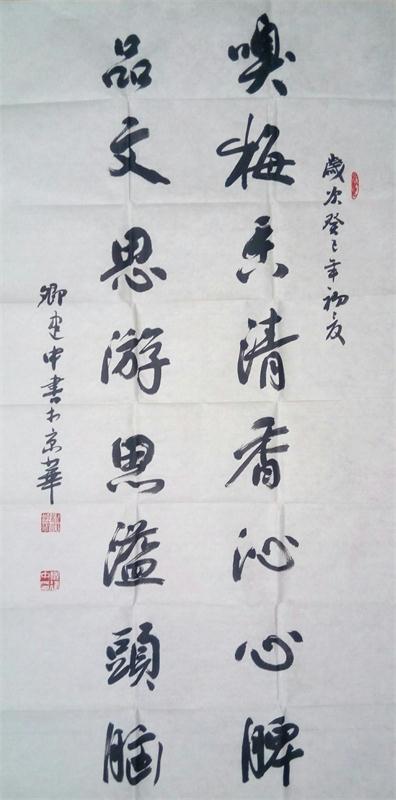 歲次癸巳年初夏
嗅梅香清香沁心脾
品文思游思溢頭腦
卿建中書於京華